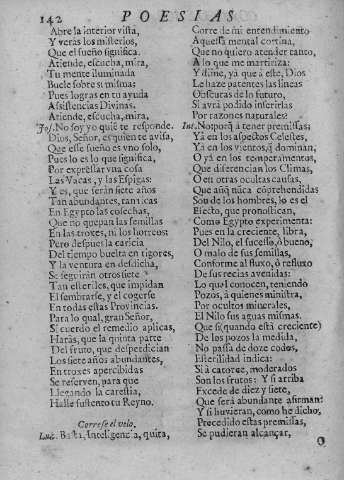 142 POESIAS
Abre la interior vista,
Y verás los misterios,
Que el sueño significa.
Atiende, escucha, mira,
Tu mente iluminada
Buele sobre sì misma:
Pues logras en tu ayuda
Assistencias Divinas.
Atiende, escucha, mira,
Jos. No soy yo quiē te responde.
Dios, Señor, es quien te avisa,
Que esse sueño es vno solo,
Pues lo es lo que significa,
Por expressar vna cosa
Las Vacas, y las Espigas:
Y es, que serán siete años
Tan abundantes,
En Egypto las cosechas,
Que no quepan las semillas
En las troxes, ni los horreos:
Pero despues la caricia
Del tiempo buelta en rigores,
Y la ventura en desdicha,
Se seguirán otros siete
Tan esteriles, que impidan
El sembrarse, y el cogerse
En todas estas Provincias.
Para lo qual, gran Señor,
Si cuerdo el remedio aplicas,
Harás, que la quinta parte
Del fruto, que desperdician
Los siete años abundantes,
En troxes apercibidas
Se reserven, para que
Llegando la carestia,
Halle sustento tu Reyno.
Correse el velo.
Luz. Basta, Inteligencia, quita,
Corre de mi entendimiento
Aquessa mental cortina,
Que no quiero atender tanto,
A lo que me martiriza:
Y dime, yá que à este, Dios
Le haze patentes las lineas
Obscuras de lo futuro,
Si avrà podido inferirlas
Por razones naturales?
Int. No; porq̃ à tener premissas:
Yá en los aspectos Celestes,
Yá en los vientos, q̃ dominan,
O yá en los temperamentos,
Que diferencian los Climas,
O en otras ocultas causas,
Que aũq̃ nũca cōprehendidas
Son de los hombres, lo es el
Efecto, que pronostican,
Como Egypto experimenta:
Pues en la creciente, libra,
Del Nilo, el sucesso, ò bueno,
O malo de sus semillas,
Conforme al fluxo, ò refluxo
De sus recias avenidas:
Lo qual conocen, teniendo
Pozos, à quienes ministra,
Por ocultos minerales,
El Nilo sus aguas mismas.
Que si (quando está creciente)
De los pozos la medida,
No passa de doze codos,
Esterilidad indica:
Si à catorze, moderados
Son los frutos: Y si arriba
Excede de diez y siete,
Que será abundante afirman:
Y si huvieran, como he dicho,
Precedido estas premissas,
Se pudieran alcançar,
O